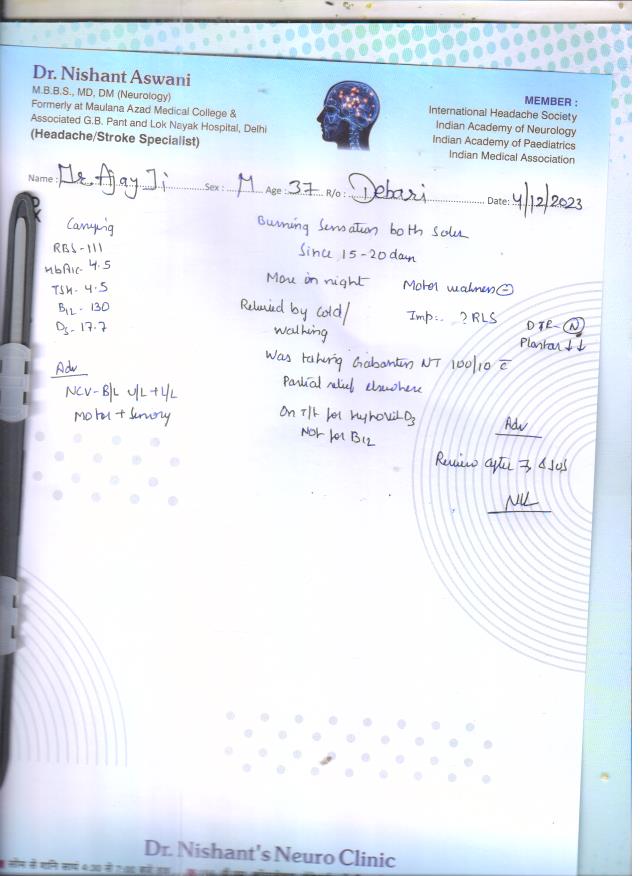 Dr. Nishant Aswani
M.B.B.S., MD, DM (Neurology)
Formerly at Maulana Azad Medical College &
Associated G.B. Pant and Lok Nayak Hospital, Delhi
(Headache/Stroke Specialist)
MEMBER :
International Headache Society
Indian Academy of Neurology
Indian Academy of Paediatrics
Indian Medical Association
Name : Mr. Ajay Ji Sex : M Age : 37 R/o : Debari Date: 4/12/2023
Carrying
RBS - 111
HbA1c - 4.5
TSH - 4.5
B12 - 130
D3 - 17.7
Adv
NCV - B/L U/L + L/L
Motor + Sensory
Burning Sensation both Soles
Since 15-20 days
More in night
Relieved by cold/
walking
Motor weakness ⊖
Imp:. ? RLS
DTR - N
Plantar ↓↓
Was taking Gabantin NT 100/10 c̄
Partial relief elsewhere
On T/t for hypovit D3
Not for B12
Adv
Review after
Dr. Nishant's Neuro Clinic